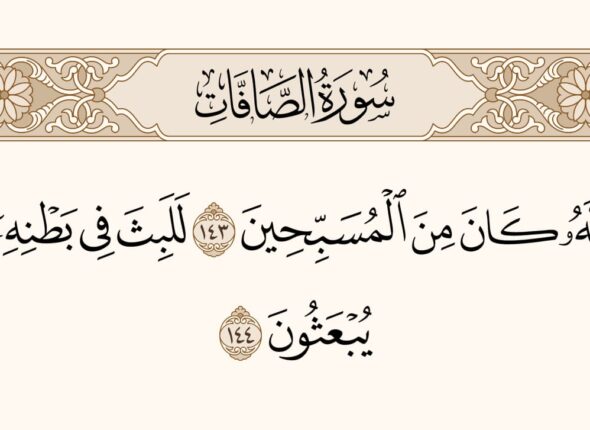 سُورَةُ الصَّافَّاتِ
كَانَ مِنَ ٱلْمُسَبِّحِينَ ١٤٣ لَلَبِثَ فِى بَطْنِهِۦ
يُبْعَثُونَ ١٤٤